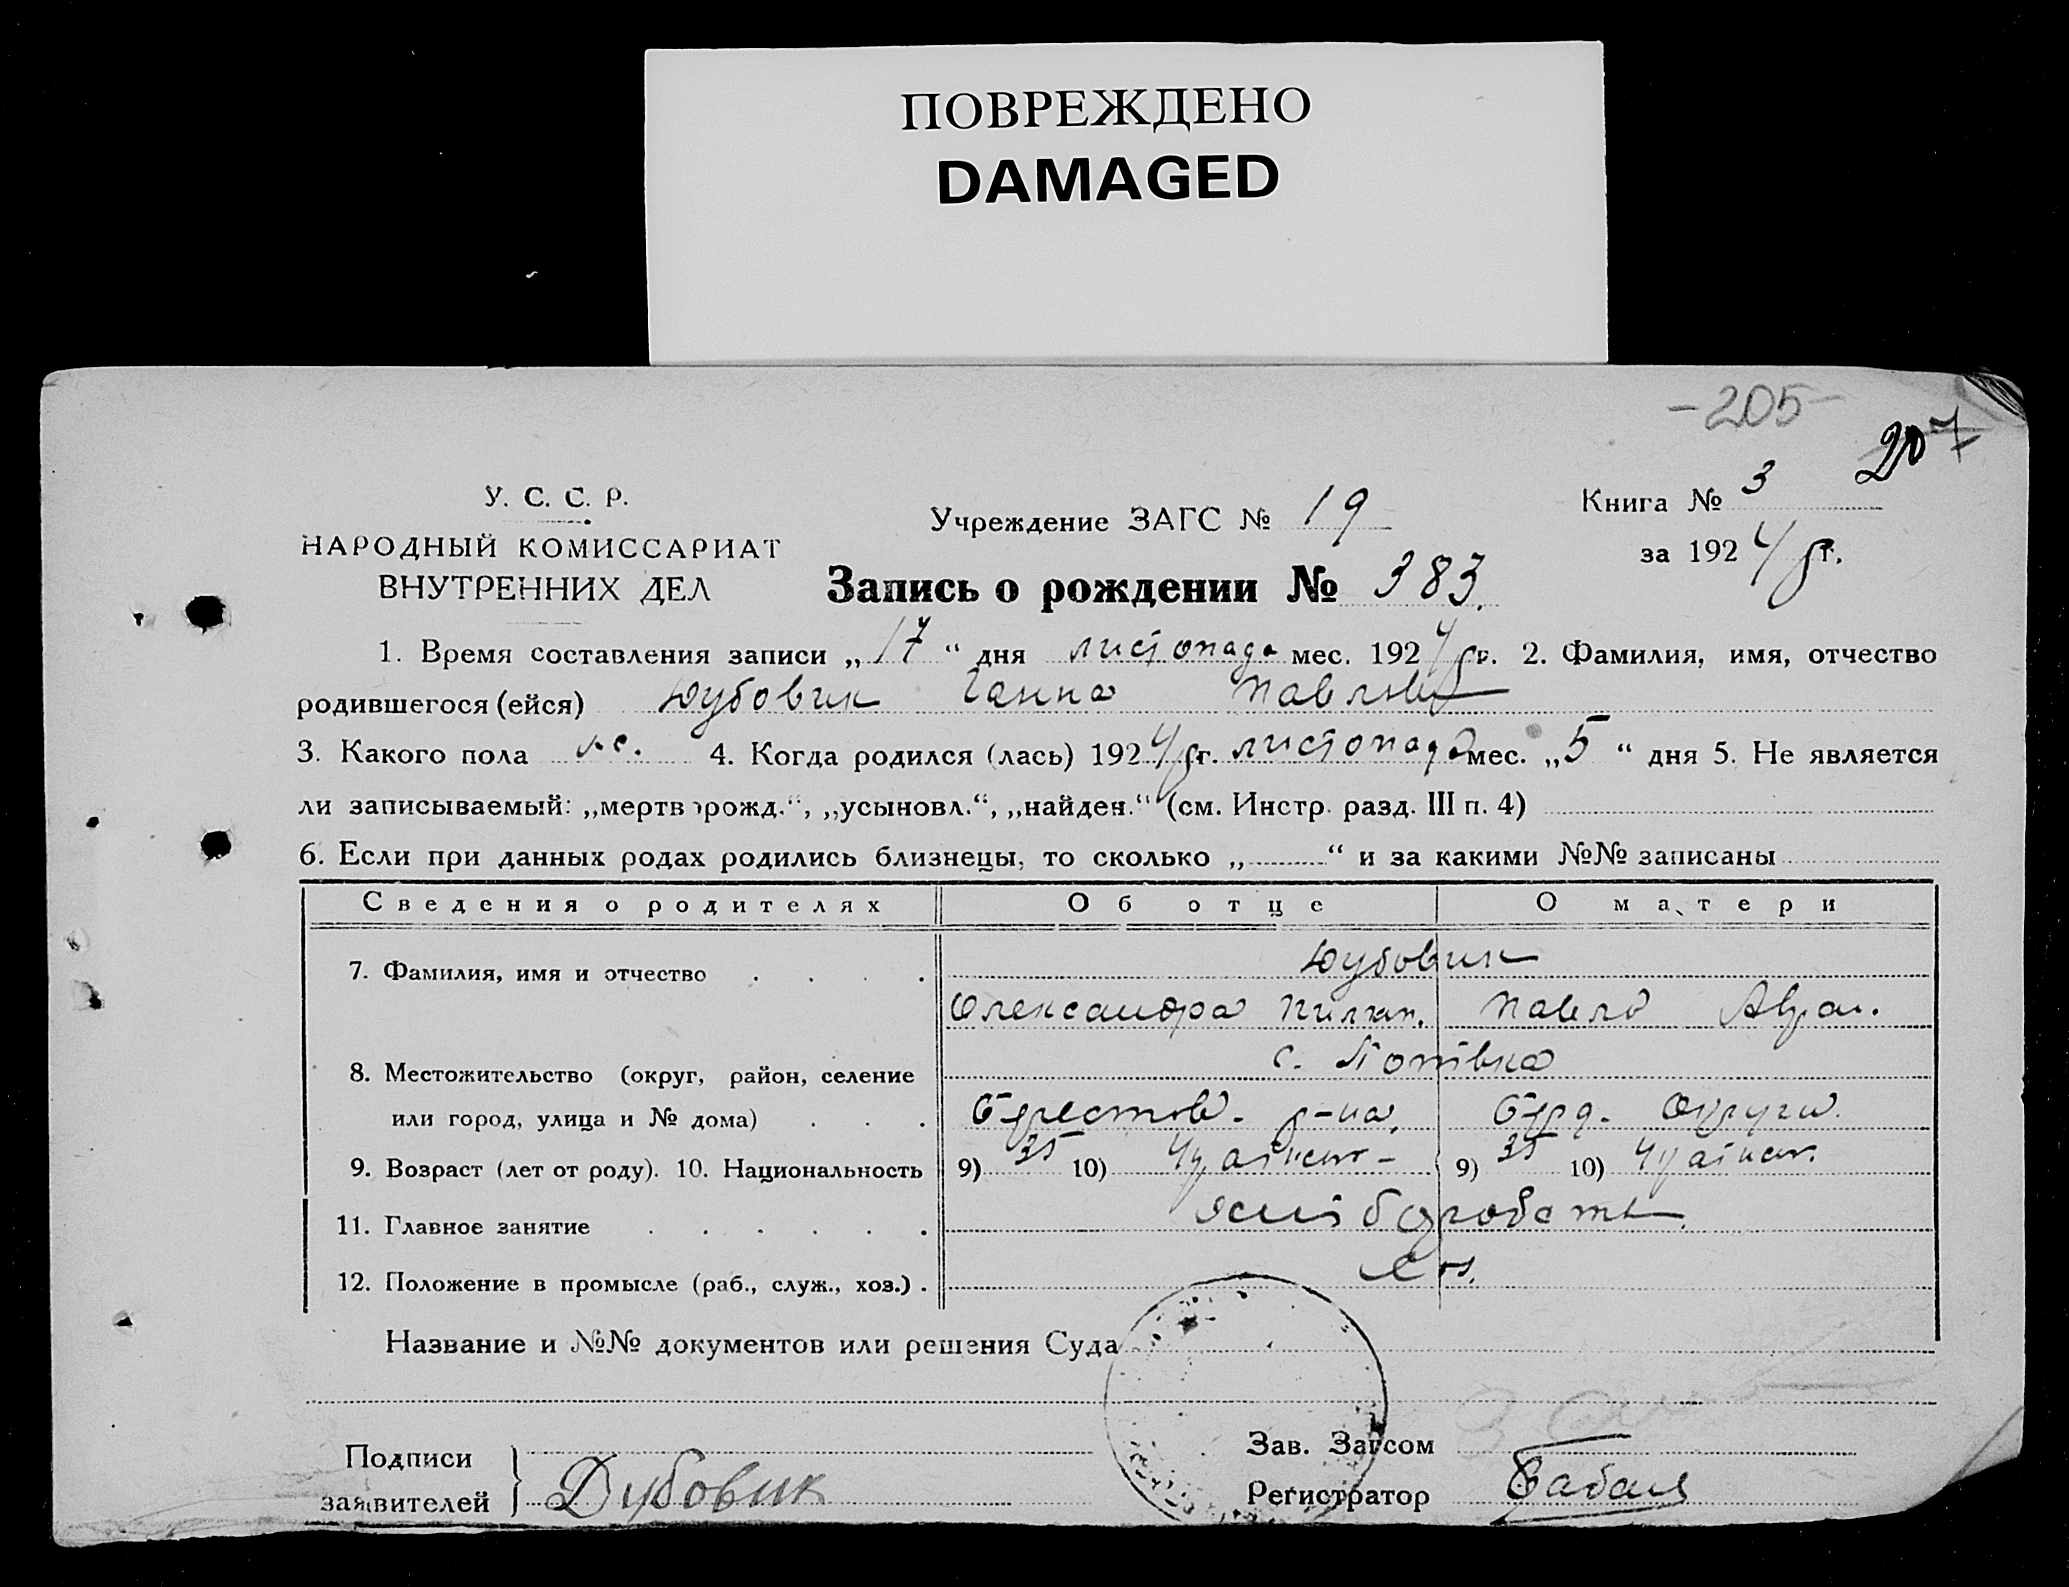 ПОВРЕЖДЕНО
DAMAGED
-205-
207
У. С. С. Р.
НАРОДНЫЙ КОМИССАРИАТ
ВНУТРЕННИХ ДЕЛ
Учреждение ЗАГС № 19
Книга № 3
за 192 г.
Запись о рождении № 383.
1. Время составления записи „17“ дня листопада мес. 192 г. 2. Фамилия, имя, отчество
родившегося (ейся) Дубовик Ганна Павлов
3. Какого пола ж. 4. Когда родился (лась) 192 г. листопада мес. „5“ дня 5. Не является
ли записываемый: „мертворожд.“, „усыновл.“, „найден.“ (см. Инстр. разд. III п. 4)
6. Если при данных родах родились близнецы, то сколько „ “ и за какими №№ записаны
Сведения о родителях Об отце О матери
7. Фамилия, имя и отчество . . . . Дубовик
Олександра Пилип. Павло Авр.
8. Местожительство (округ, район, селение с.
или город, улица и № дома) . . . Берестов. р-на, Берд. Округи
9. Возраст (лет от роду). 10. Национальность 9) 35 10) 9) 35 10)
11. Главное занятие . . . . . .
12. Положение в промысле (раб., служ., хоз.) .
Название и №№ документов или решения Суда
Подписи
заявителей } Дубовик
Зав. Загсом
Регистратор